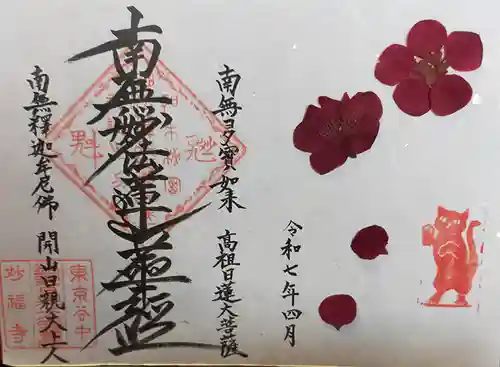 南無多寶如来
高祖日蓮大菩薩
南無妙法蓮華經
南無釋迦牟尼佛
開山日觀大上人
令和七年四月
東京谷中
妙福寺